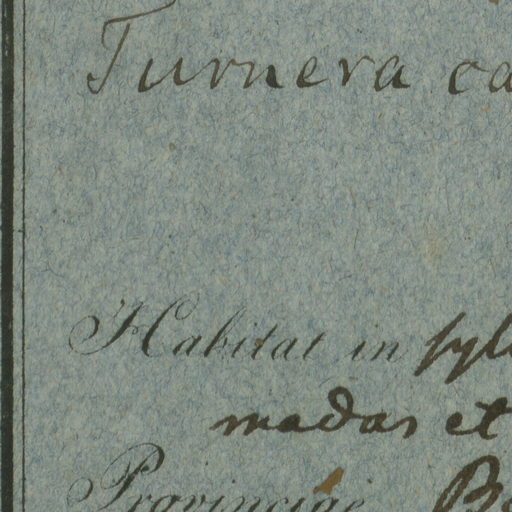 Turnera ca
Habitat in syl
madas et
Provinciae B